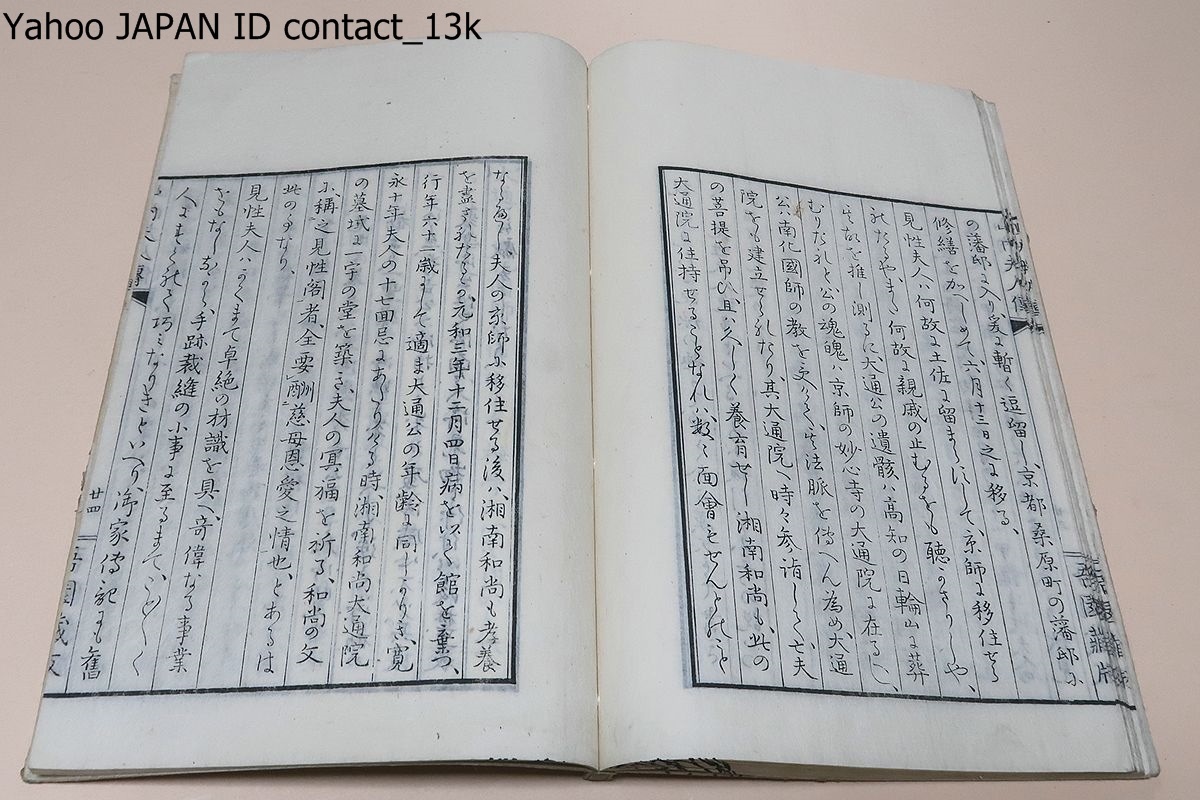 Yahoo JAPAN ID contact_13k
の藩邸に入り爰に暫く逗留し、京都桑原町の藩邸に
修繕を加へしめて、六月十三日之に移る、
見性夫人ハ何故に土佐に留まらにして、京師に移住せら
れたるや、また何故に親戚の止むるをも聴かさりしや、
其故を推し測るに大通公の遺骸ハ高知の日輪山に葬
むりたれと公の魂魄ハ京師の妙心寺の大通院に在るし、
公ハ南化國師の教を
其法脈を傳へん為め大通
院をも建立せられたり其大通院へ時々参詣して亡夫
の菩提を弔ひ且ハ久しく養育せし湘南和尚も此の
大通院に住持せることなれハ数々面會もせんとの
なるへし、夫人の京師に移住せる後ハ湘南和尚も孝養
を盡されたるか元和三年十二月四日病を以て館を棄つ、
行年六十一歳にして適ま大通公の年齢に同しかりき、寛
永十年夫人の十七回忌にあたりける時、湘南和尚大通院
の墓域に一宇の堂を築き、夫人の冥福を祈る、和尚の文
に、稱之見性閣者、全要酬慈母恩愛之情也、とあるは
此のなり、
見性夫人ハかくまて卓絶の材識を具へ、奇偉なる事業
をもなしなから、手跡裁縫の小事に至るまて、ことことく
人にすくれて巧になりきといへり、御家傳記にも舊
廿四